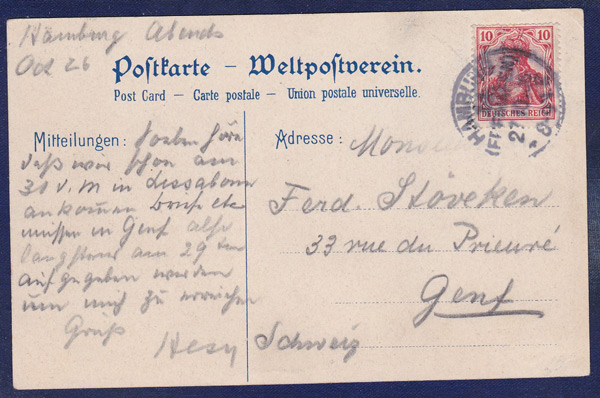 Hamburg Abends
Oct 26
Postkarte – Weltpostverein.
Post Card – Carte postale – Union postale universelle.
10 10
DEUTSCHES REICH
HAMBURG
Mitteilungen: Soeben höre
daß wir schon am
30 d. M in Lissabon
ankommen Briefe etc
müssen in Genf also
längstens am 27
aufgegeben werden
um mich zu erreichen
Gruß
Adresse:
Ferd. Stöveken
33 rue du Prieuré
Genf
Schweiz